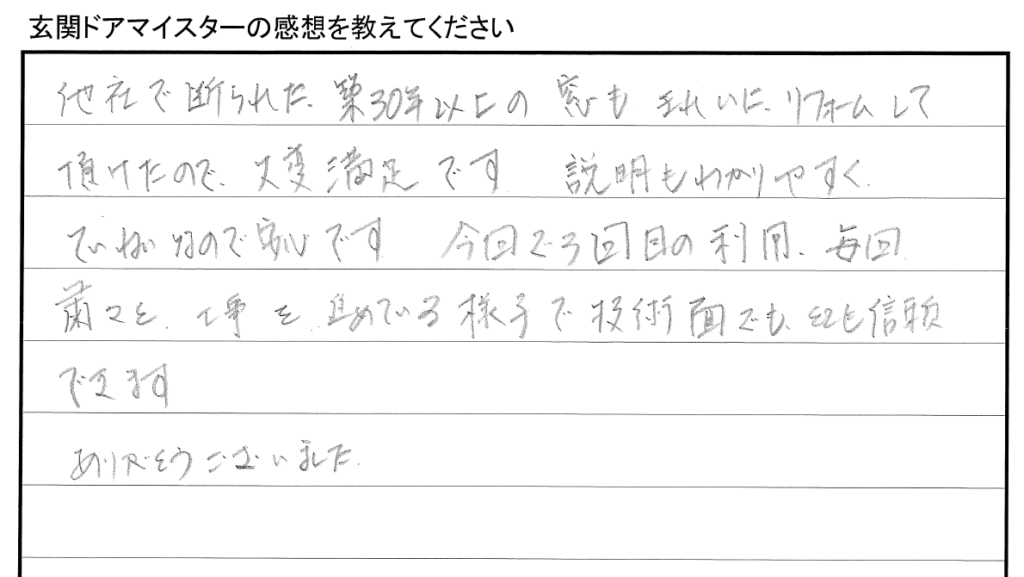 玄関ドアマイスターの感想を教えてください
他社で断られた、築30年以上の 窓も きれいに、リフォームして
頂けたので、大変満足です 説明もわかりやすく、
ていねいなので安心です 今回で3回目の利用、毎回
粛々と、工事を、進めている様子で技術面でも、とても信頼
できます
ありがとうございました。